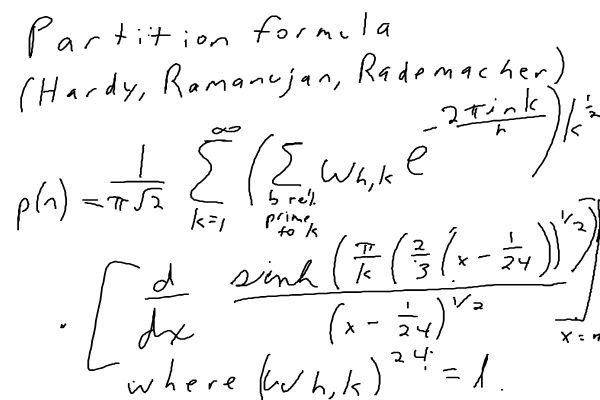 Partition formula
(Hardy, Ramanujan, Rademacher)
p(n) = \frac{1}{\pi\sqrt{2}} \sum_{k=1}^{\infty} \left( \sum_{h \text{ rel. prime to } k} \omega_{h,k} e^{-\frac{2\pi i n k}{h}} \right) k^{\frac{1}{2}}
\cdot \left[ \frac{d}{dx} \frac{\sinh\left(\frac{\pi}{k}\left(\frac{2}{3}\left(x - \frac{1}{24}\right)\right)^{1/2}\right)}{\left(x - \frac{1}{24}\right)^{1/2}} \right]_{x=n}
where (\omega_{h,k})^{24} = 1.